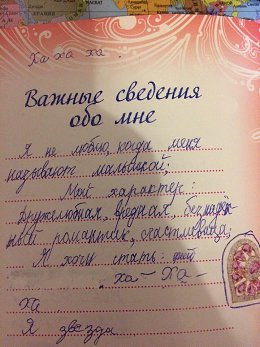 Ха ха ха.
Важные сведения
обо мне
Я не люблю, когда меня
называют малышкой;
Мой характер:
Дружелюбная, вредная, безнадёж
ный романтик, счастливица;
Я хочу стать: феей
ха - ха -
ха.
Я звезда